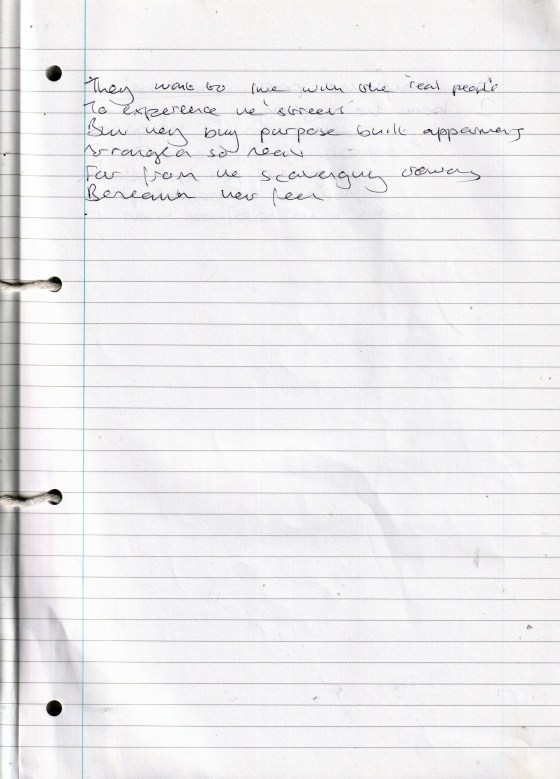 They want to live with the 'real people'
To experience the 'streets'
But they buy purpose built appartments
Arranged so neat
Far from the scavenging crowds
Beneath their feet